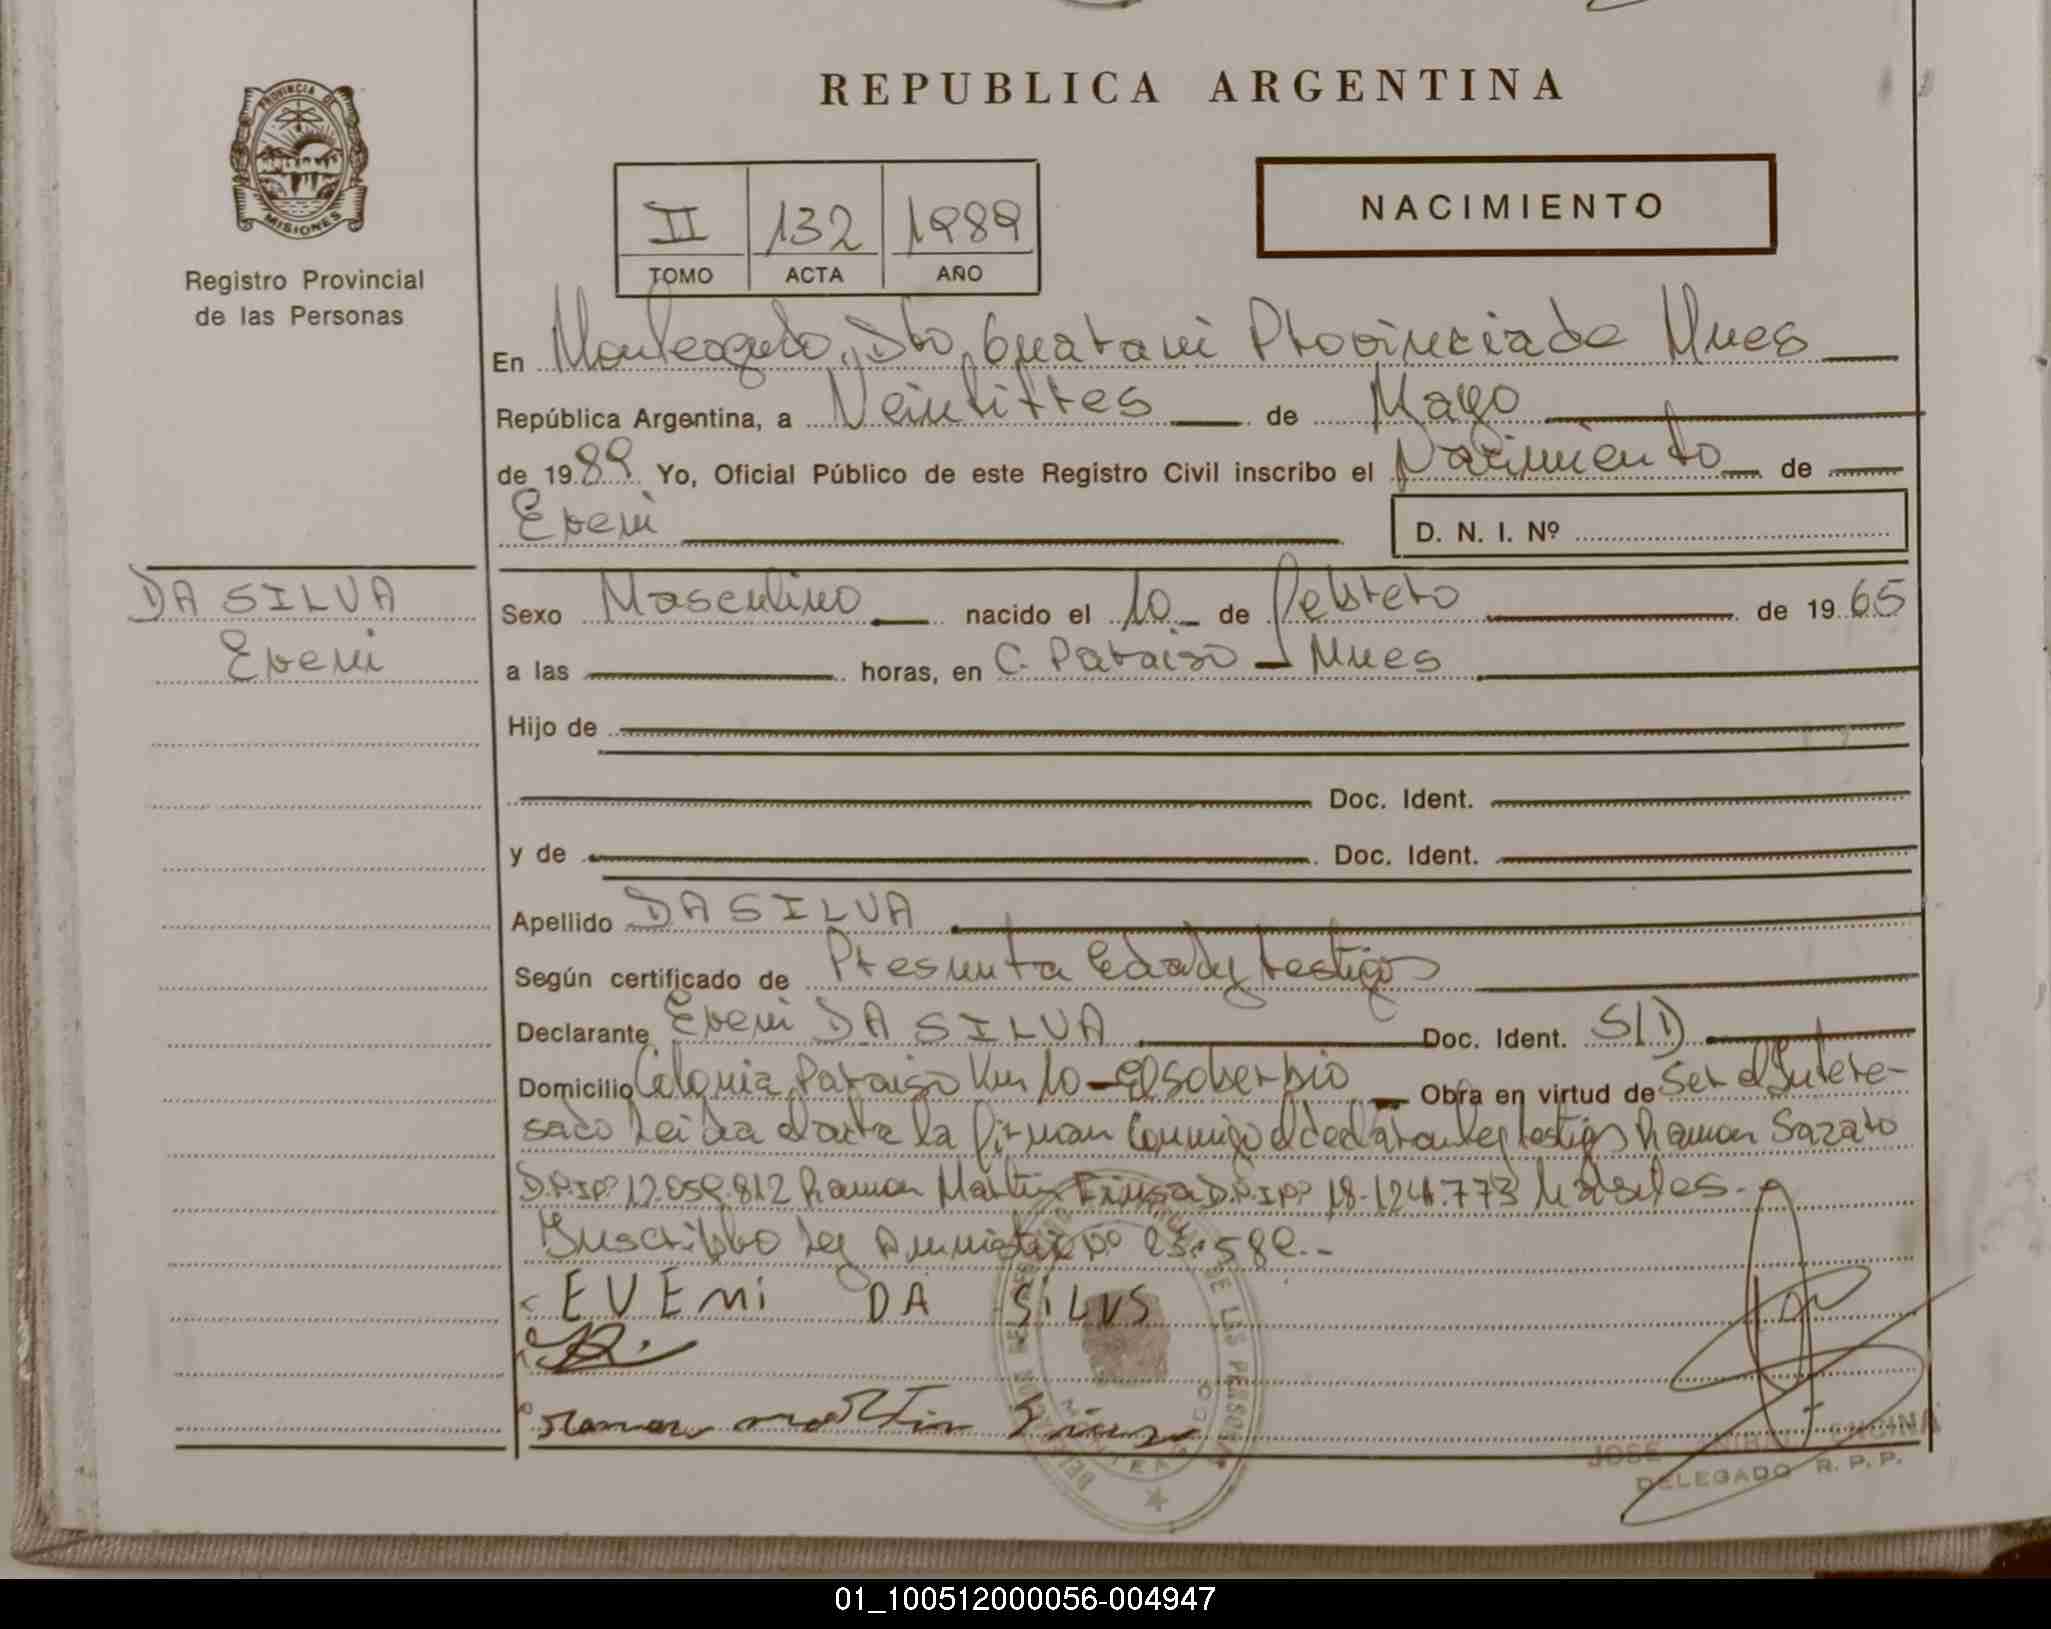 REPUBLICA ARGENTINA
PROVINCIA DE
MISIONES
Registro Provincial
de las Personas
II 132 1989
TOMO ACTA AÑO
NACIMIENTO
En Monteagudo, Dto, Guarani Provincia de Mnes
República Argentina, a Veintitres de Mayo
de 1989 Yo, Oficial Público de este Registro Civil inscribo el Nacimiento de
Eveni
D. N. I. Nº
DA SILVA
Eveni
Sexo Masculino nacido el 10 de febrero de 1965
a las horas, en C. Paraiso - Mnes
Hijo de
Doc. Ident.
y de Doc. Ident.
Apellido DA SILVA
Según certificado de Presunta Edad y testigos
Declarante Eveni DA SILVA Doc. Ident. S/D
Domicilio Colonia Paraiso Km 10 - El soberbio Obra en virtud de Ser el Intere-
sado Leida el acta la firman Conmigo el declarante y testigos Ramon Sazaro
12.059.812 Ramon Martin 18.124.773 habiles.-
Suscribo ley Amnistia Nº 23.
EVEMi DA SiLVS
Ramon martin
DE LAS PERSONAS
JOSE ENCINA
DELEGADO R. P. P.
01_100512000056-004947